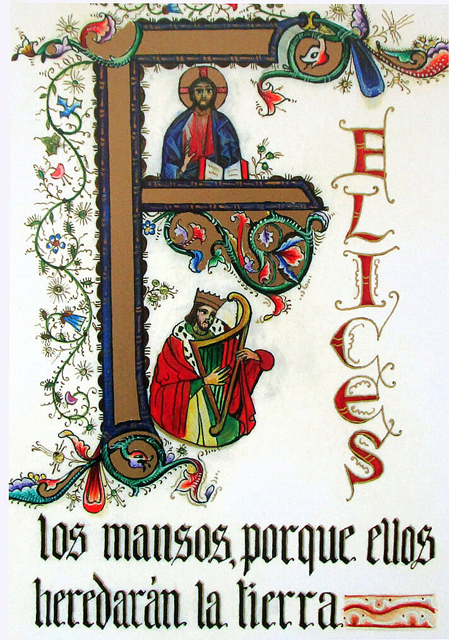 FELICES
los mansos, porque ellos
heredarán la tierra